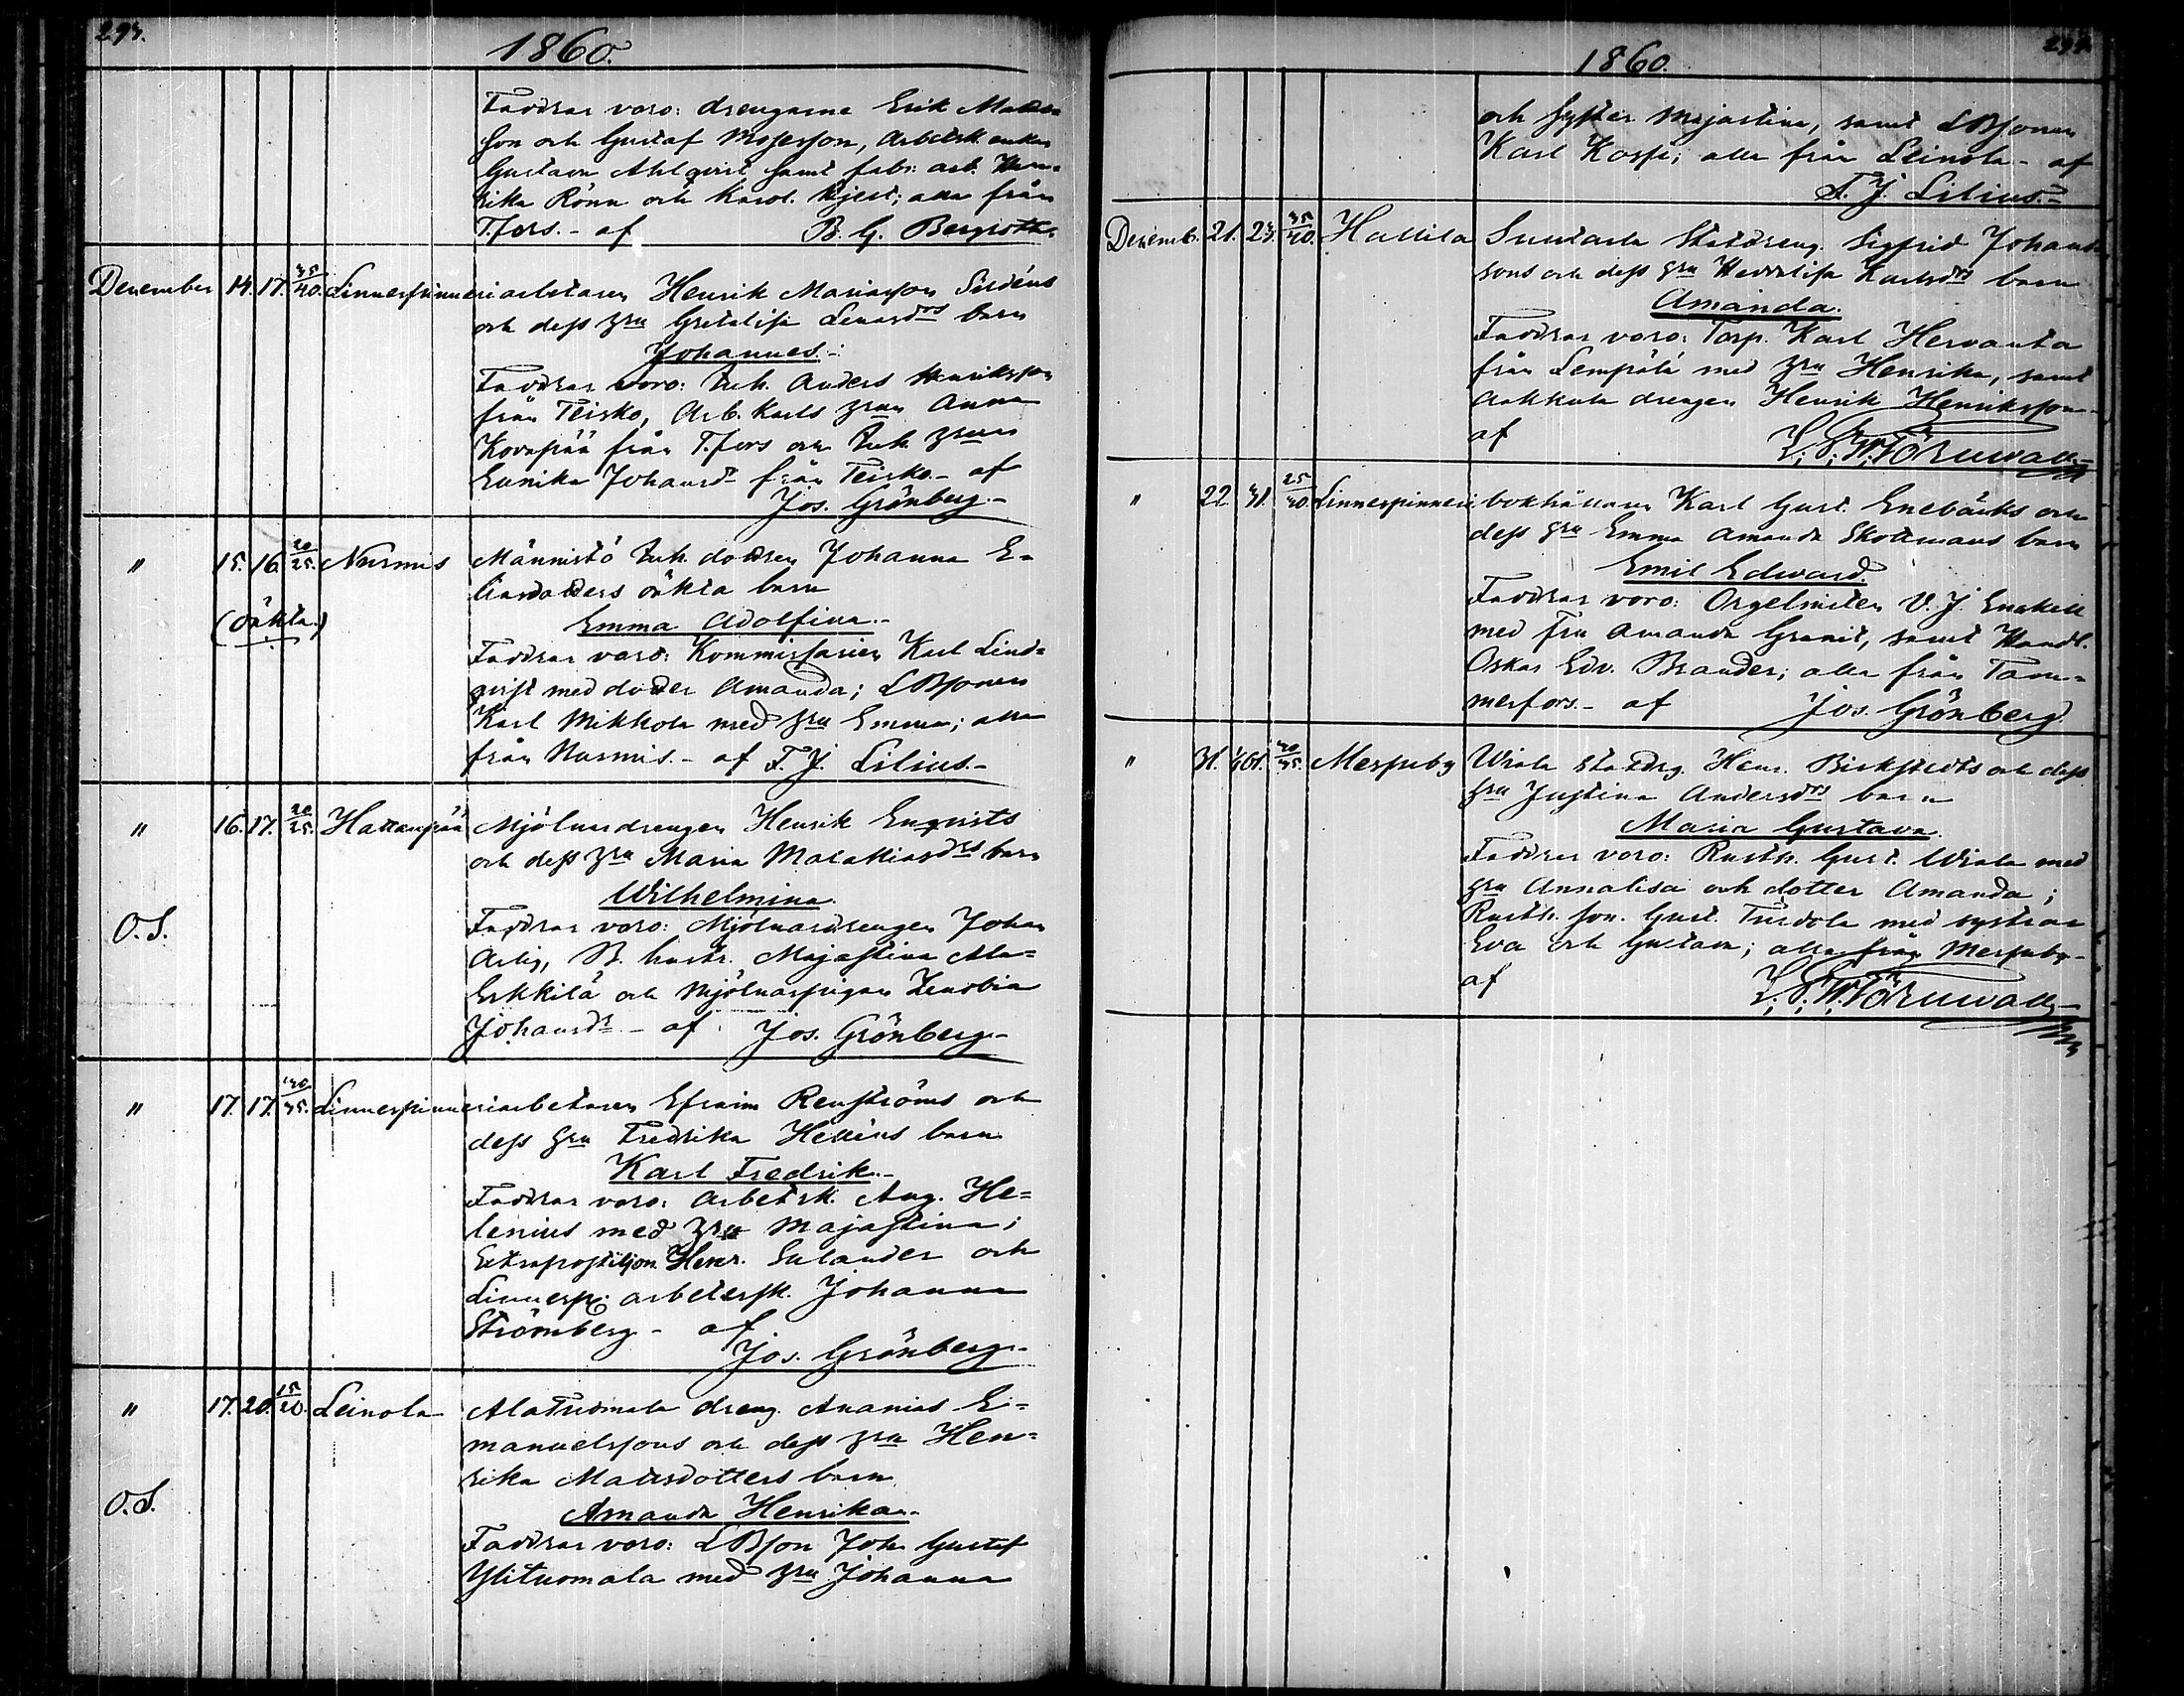 1860.
Faddrar voro: drengarne Erik Matts
son och Gustaf Mosesson, Arbetsk. enkan
Gustava Ahlqvist samt fabr. arb. Hen-
rika Rönn och Karol. Kjest; alla från
T.fors. - af B. G. Bergroth.
December 14. 17. 35/40. Linnespinneriarbetaren Henrik Mariasson
och dess hru Gretalisa Lenardrs barn
Johannes.-
Faddrar voro: Inh. Anders Henriksson
från Teisko, Arb. Karls hrun Anna
Korapää från T.fors och Inh. hrun
Eunika Johansdr från Teisko. - af
Jos. Grönberg.-
" 15. 16. 20/25. Nurmis Männistö Inh. dottren Johanna E-
liædotters oäkta barn
(oäkta)
Emma Adolfina.-
Faddrar voro: Kommissarien Karl Lind-
qvist med dotter Amanda; LBsonen
Karl Mikkola med hru Emma; alla
från Nurmis. - af F. J. Lilius.-
" 16. 17. 20/25. Hatanpää Mjölnardrengen Henrik Enqvists
och dess hru Maria Malakiasdrs barn
Wilhelmina.
O.S. Faddrar voro: Mjölnardrengen Johan
Arbig, B. hustr. Majastina Ala-
Erkkilä och Mjölnarpigan Zenobia
Johansdr - af Jos. Grönberg.-
" 17. 17. 40/45. Linnespinneriarbetaren Efraim Renströms och
dess hru Fredrika Helléns barn
Karl Fredrik.-
Faddrar voro: Arbetsk. Aug. He-
lenius med hru Majastina;
Extrapostiljon Henr. Sulander och
Linnesp. arbetersk. Johanna
Strömberg - af
Jos. Grönberg.-
" 17. 20. 15/20. Leinola AlaTuomala dreng. Ananias E-
manuelssons och dess hru Hen-
rika Mattsdotters barn
O.S.
Amanda Henrika.-
Faddrar voro: LBson Joh. Gustaf
Ylituomala med hru Johanna
1860.
och syster Majastina, samt LBsonen
Karl Kaspi; alla från Leinola - af
F. J. Lilius.-
Decemb. 21. 23. 35/40. Hallila Suutarla Statdreng. Sigfrid Johans
sons och dess hru Heddalisa Karlsdrs barn
Amanda.
Faddrar voro: Torp. Karl Hervanta
från Lempälä med hru Henrika, samt
Aakkula drengen Henrik Henriksson -
af L. P. W. Törnwall
" 22. 31. 25/30. Linnespinneri bokhållaren Karl Gust. Enebäcks och
dess hru Emma Amanda Skottmans barn
Emil Edward.
Faddrar voro: Orgelnisten V. J. Enckell
med fru Amanda Granit, samt Handl.
Oskar Edv. Brander; alla från Tam-
merfors. - af Jos. Grönberg.
" 31. 1/61. 40/45. Messuby Wiola Statdrg. Henr. Birkstedts och dess
hru Justina Andersdrs barn
Maria Gustava.
Faddrar voro: Rusth. Gust. Wiola med
hru Annalisa och dotter Amanda;
Rusth. son. Gust. Turdola med systrar
Eva och Gustava; alla från Messuby -
af L. P. W. Törnwall